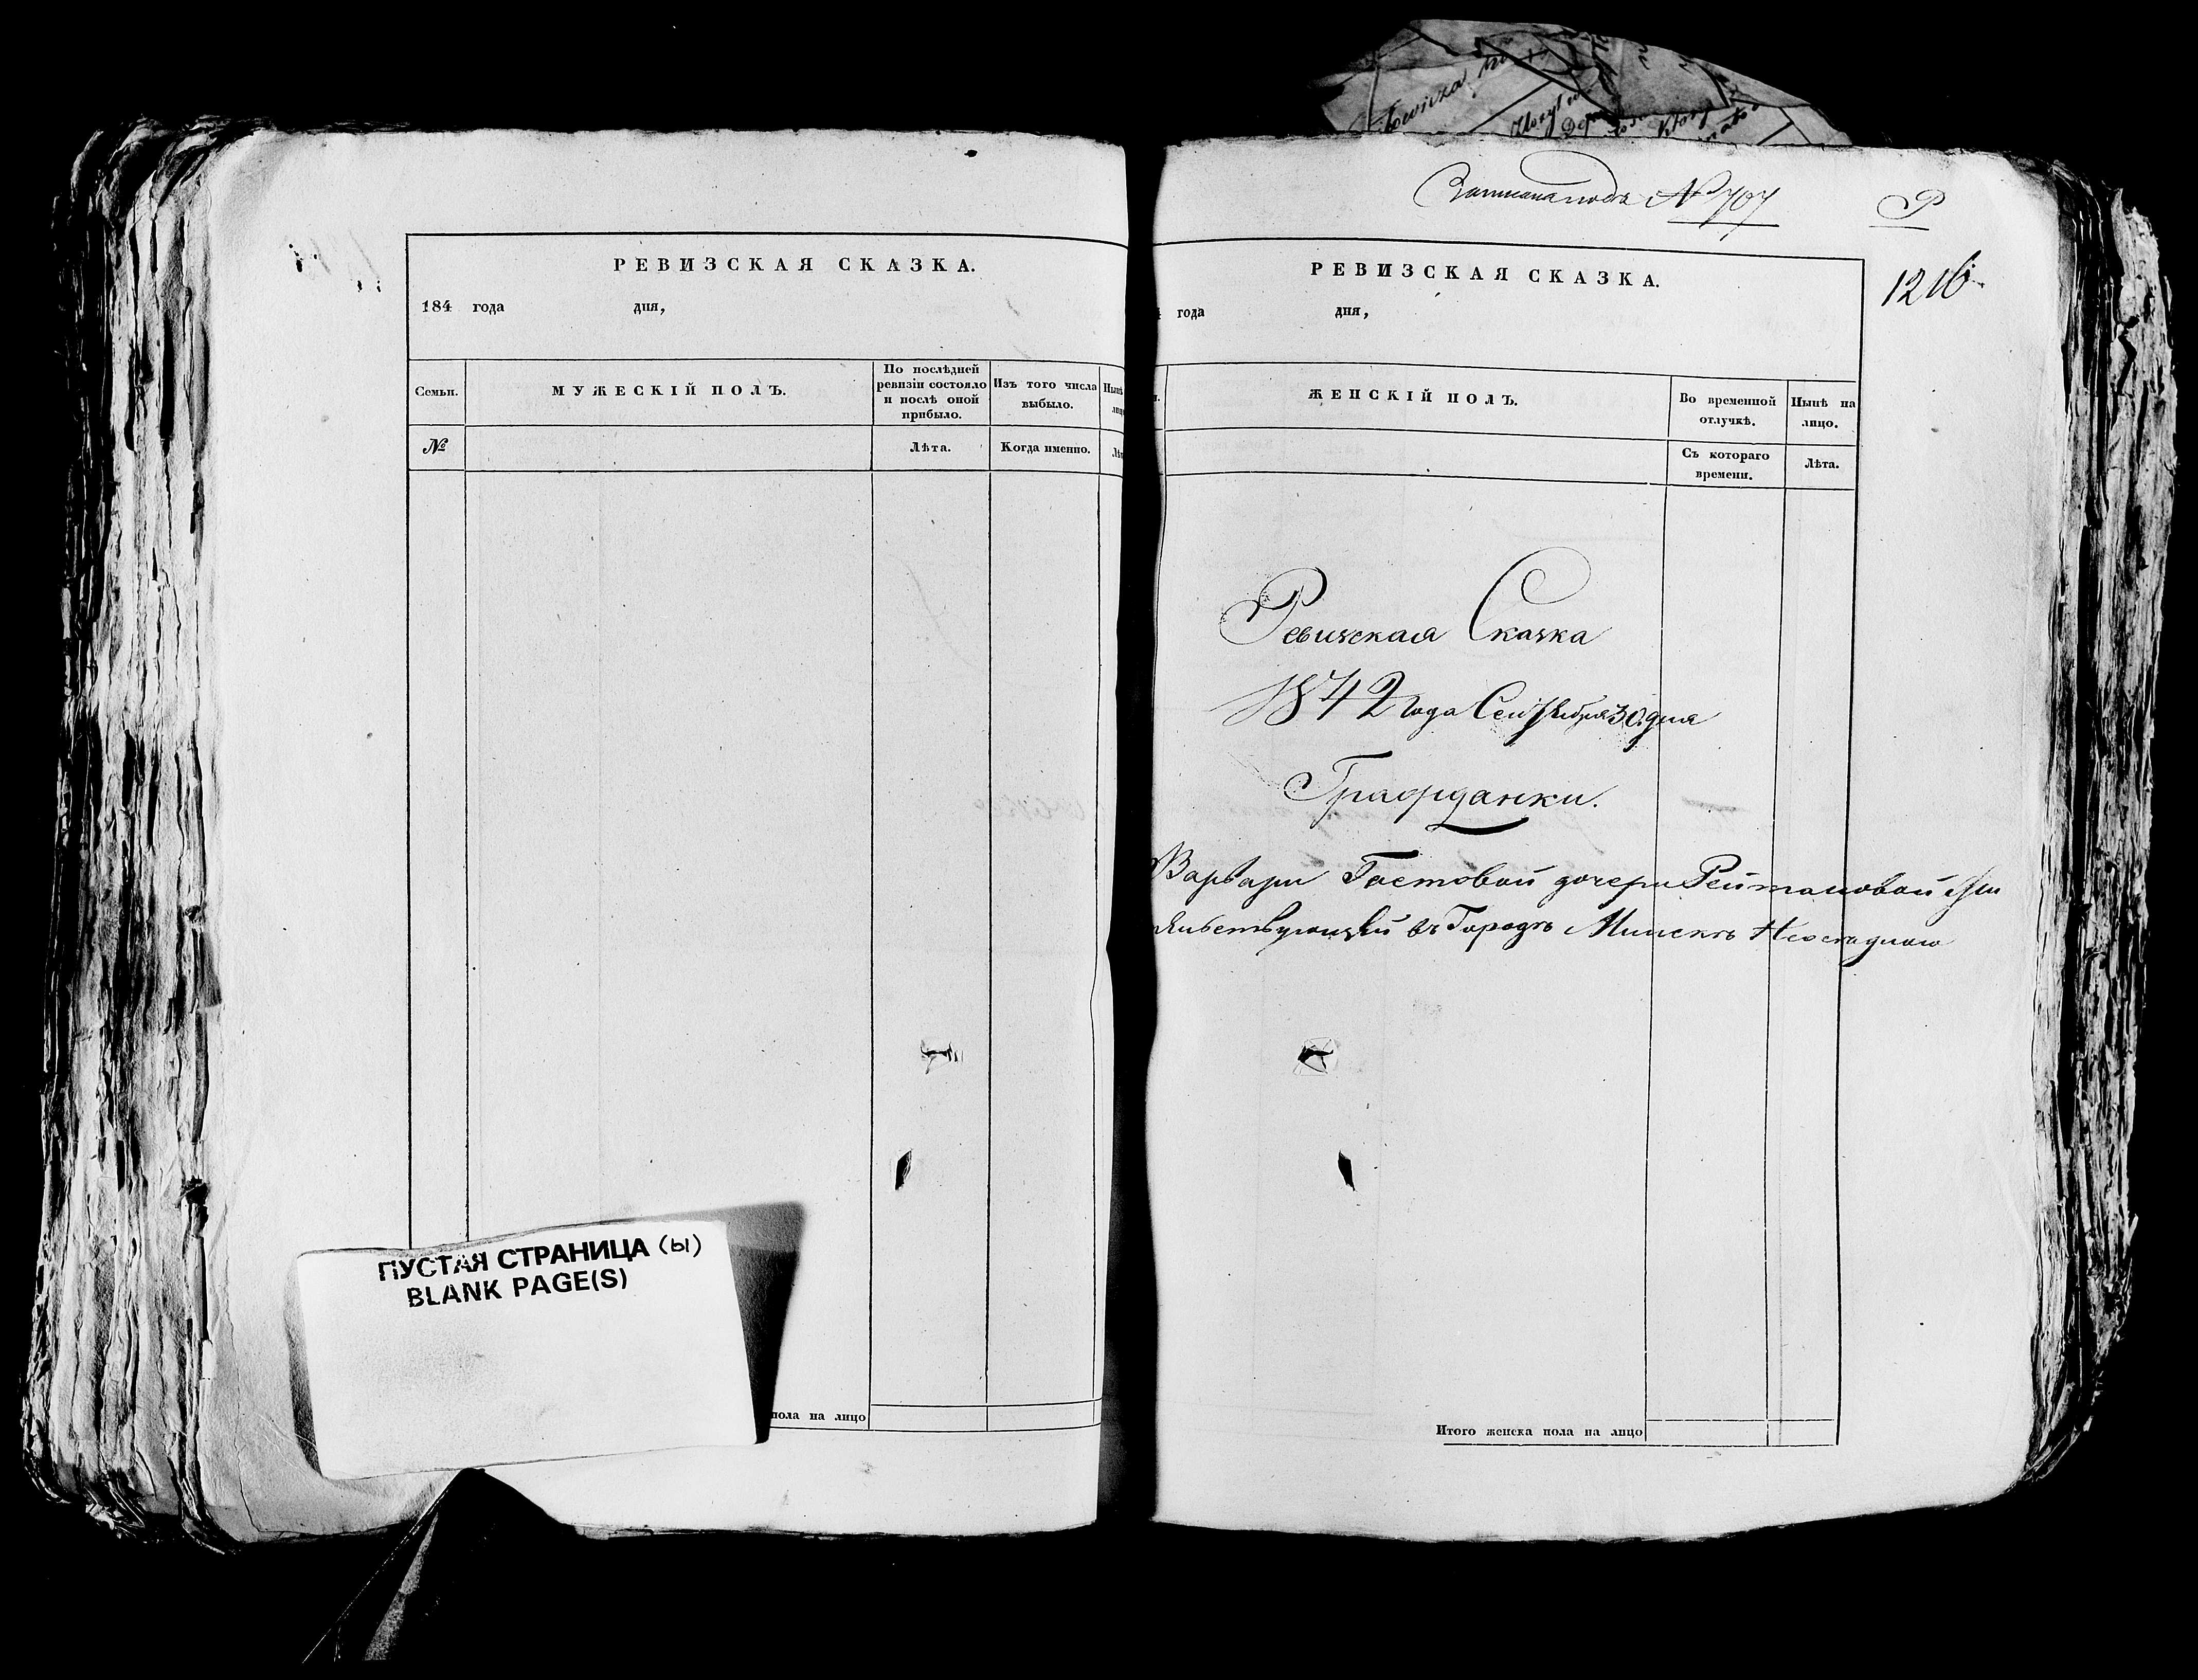 Записана подъ № 707
Р
1216
РЕВИЗСКАЯ СКАЗКА.
184 года дня,
Семьи.
МУЖЕСКІЙ ПОЛЪ.
По послѣдней
ревизіи состояло
и послѣ оной
прибыло.
Изъ того числа
выбыло.
№
Лѣта.
Когда именно.
ПУСТАЯ СТРАНИЦА (ы)
BLANK PAGE(S)
пола на лицо
РЕВИЗСКАЯ СКАЗКА.
года дня,
ЖЕНСКІЙ ПОЛЪ.
Во временной
отлучкѣ.
Нынѣ на
лицо.
Съ котораго
времени.
Лѣта.
Ревизская Сказка
1842 года Сентября 30 дня
Гражданки.
Варвари дочери Рейтановой
въ Городѣ Минскѣ
Итого женска пола на лицо